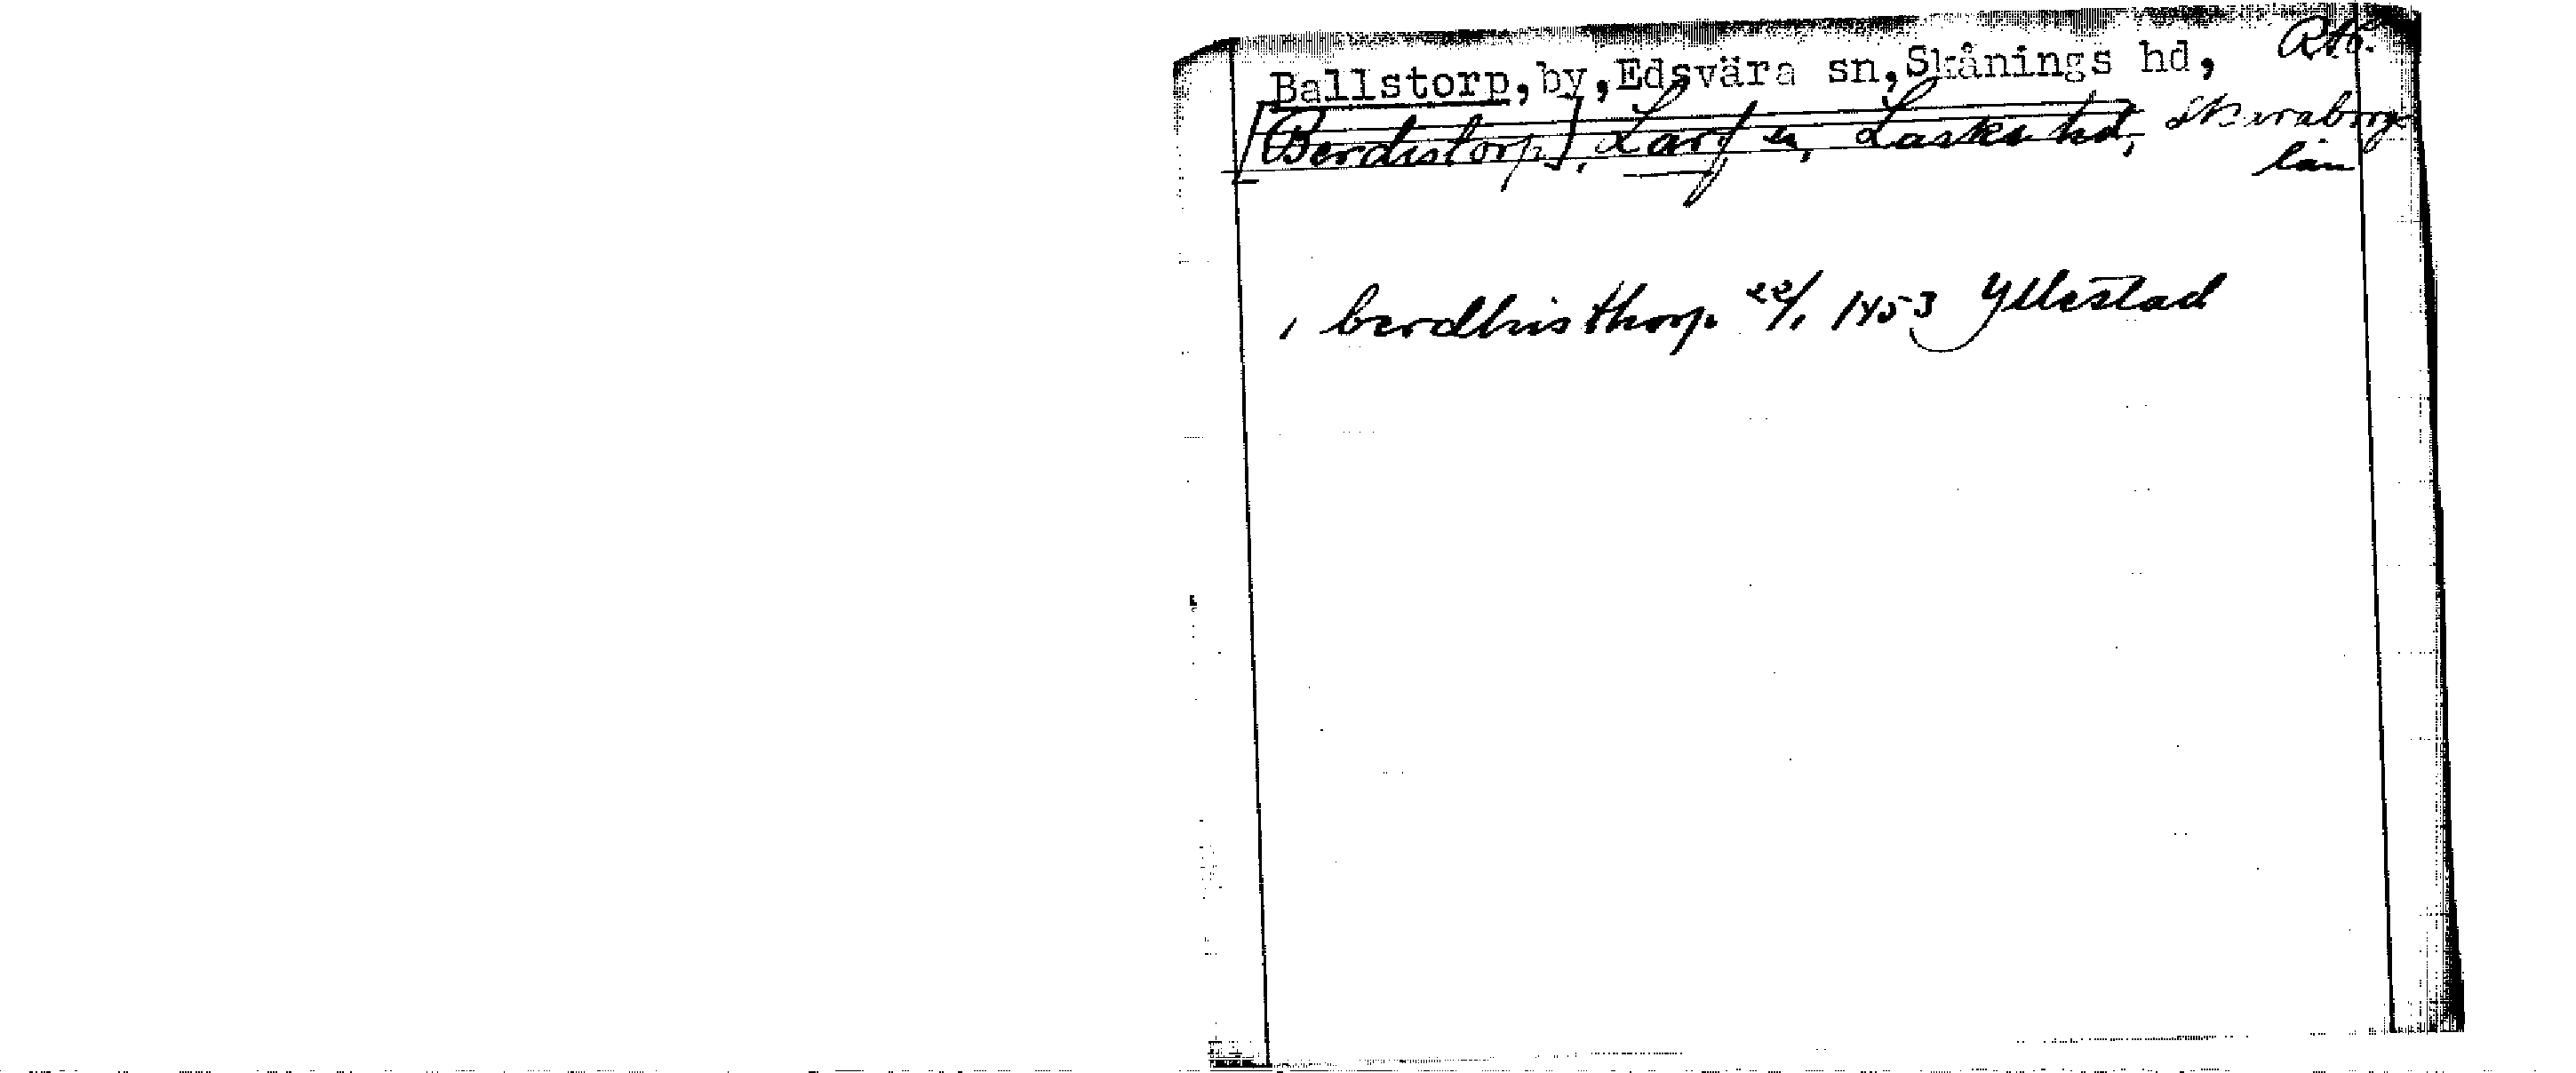 Ballstorp, by, Edsvära sn, Skånings hd, Rto.
[Berdistorp], Larf sn, Laska hd, Skaraborgs
län
i berdhisthorp 22/1 1453 Yllestad